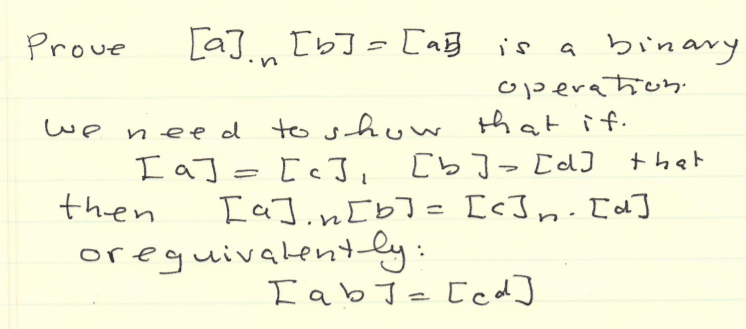 Prove [a]·n [b] = [ab] is a binary
operation.
we need to show that if.
[a] = [c], [b] = [d] that
then [a]·n[b] = [c]n·[d]
or equivalently:
[ab] = [cd]